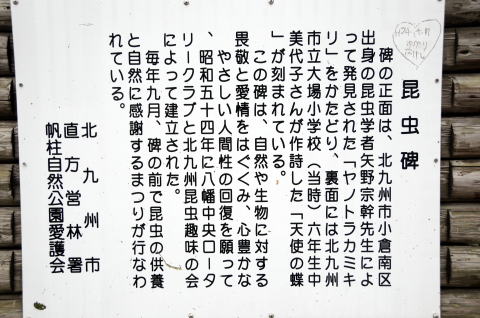 昆虫碑
碑の正面は、北九州市小倉南区
出身の昆虫学者矢野宗幹先生によ
って発見された「ヤノトラカミキ
リ」をかたどり、裏面には北九州
市立大場小学校（当時）六年生中
美代子さんが作詩した「天使の蝶
」が刻まれている。
この碑は、自然や生物に対する
畏敬と愛情をはぐくみ、心豊かな
やさしい人間性の回復を願って
、昭和五十四年に八幡中央ロータ
リークラブと北九州昆虫趣味の会
によって建立された。
毎年九月、碑の前で昆虫の供養
と自然に感謝するまつりが行なわ
れている。
北九州市
直方営林署
帆柱自然公園愛護会